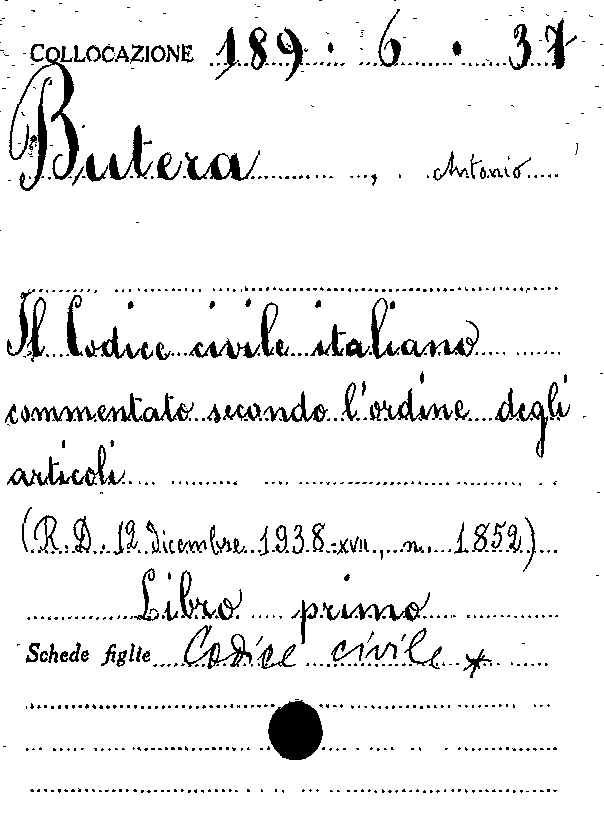 COLLOCAZIONE 189 . 6 . 37
Butera , Antonio
Il Codice civile italiano
commentato secondo l'ordine degli
articoli
(R.D. 12 dicembre 1938-XVII, n. 1852)
Libro primo
Schede figlie Codice civile *